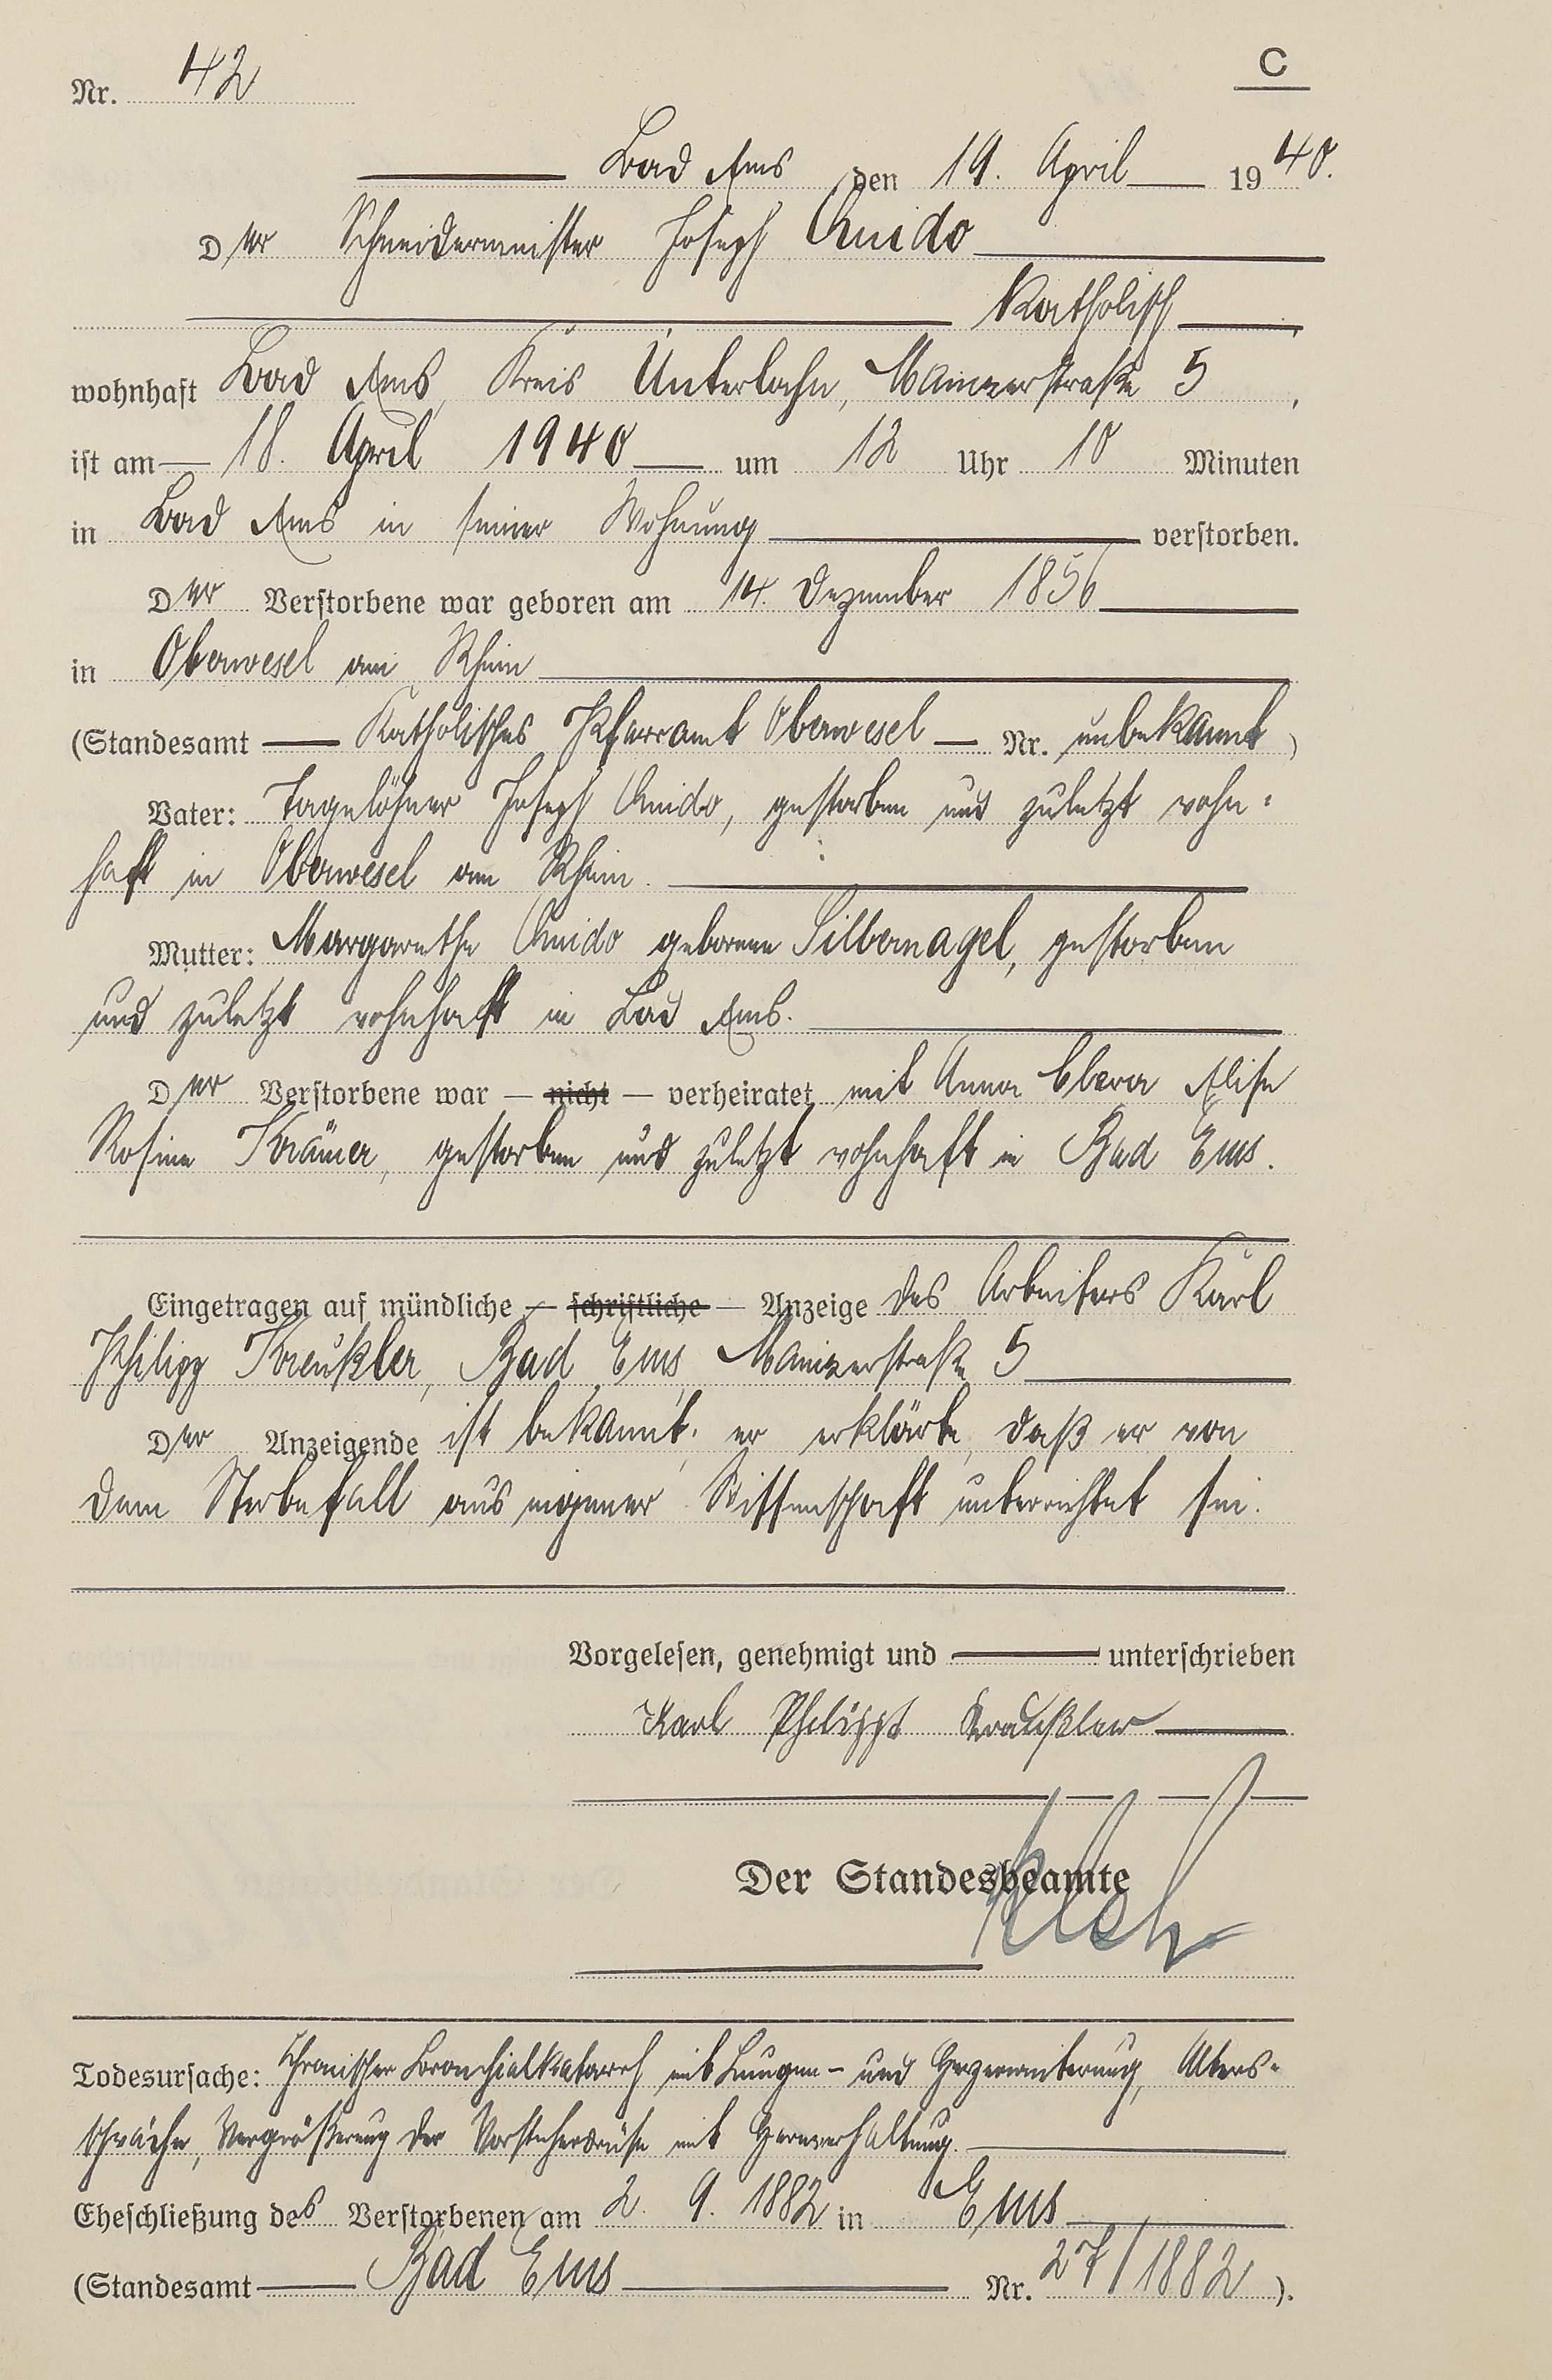 Nr. 42
C
Bad Ems den 19. April 1940.
Der Schneidermeister Joseph Guido
Katholisch
wohnhaft Bad Ems, Kreis Unterlahn, Mainzerstraße 5,
ist am 18. April 1940 um 12 Uhr 10 Minuten
in Bad Ems in seiner Wohnung verstorben.
Der Verstorbene war geboren am 14. Dezember 1856
in Oberwesel am Rhein
(Standesamt Katholisches Pfarramt Oberwesel Nr. unbekannt)
Vater: Tagelöhner Joseph Guido, gestorben und zuletzt wohn=
haft in Oberwesel am Rhein.
Mutter: Margarethe Guido geborene Silbernagel, gestorben
und zuletzt wohnhaft in Bad Ems.
Der Verstorbene war — nicht — verheiratet mit Anna Clara Elise
Rosine Krämer, gestorben und zuletzt wohnhaft in Bad Ems.
Eingetragen auf mündliche — schriftliche — Anzeige des Arbeiters Karl
Philipp Kreußler, Bad Ems, Mainzerstraße 5
Der Anzeigende ist bekannt; er erklärte, daß er von
dem Sterbefall aus eigener Wissenschaft unterrichtet sei.
Vorgelesen, genehmigt und unterschrieben
Karl Philippt Kraußler
Der Standesbeamte
Todesursache: Chronischer Bronchialkatarrh mit Lungen- und Herzerweiterung, Alters-
schwäche, Vergrößerung der Vorsteherdrüse mit Harnverhaltung.
Eheschließung des Verstorbenen am 2. 9. 1882 in Ems
(Standesamt Bad Ems Nr. 27/1882).